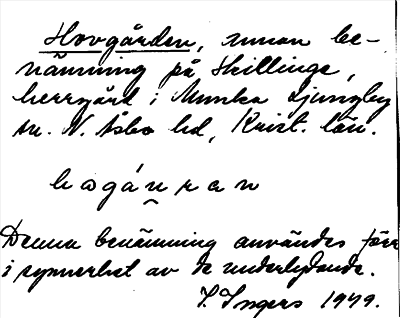 Hovgården, annan be-
nämning på Skillinge,
herrgård i Munka Ljungby
sn. N. Åsbo hd, Krist. län.
hogán ran
Denna benämning användes förr
i synnerhet av de underlydande.
I. Ingers 1949.